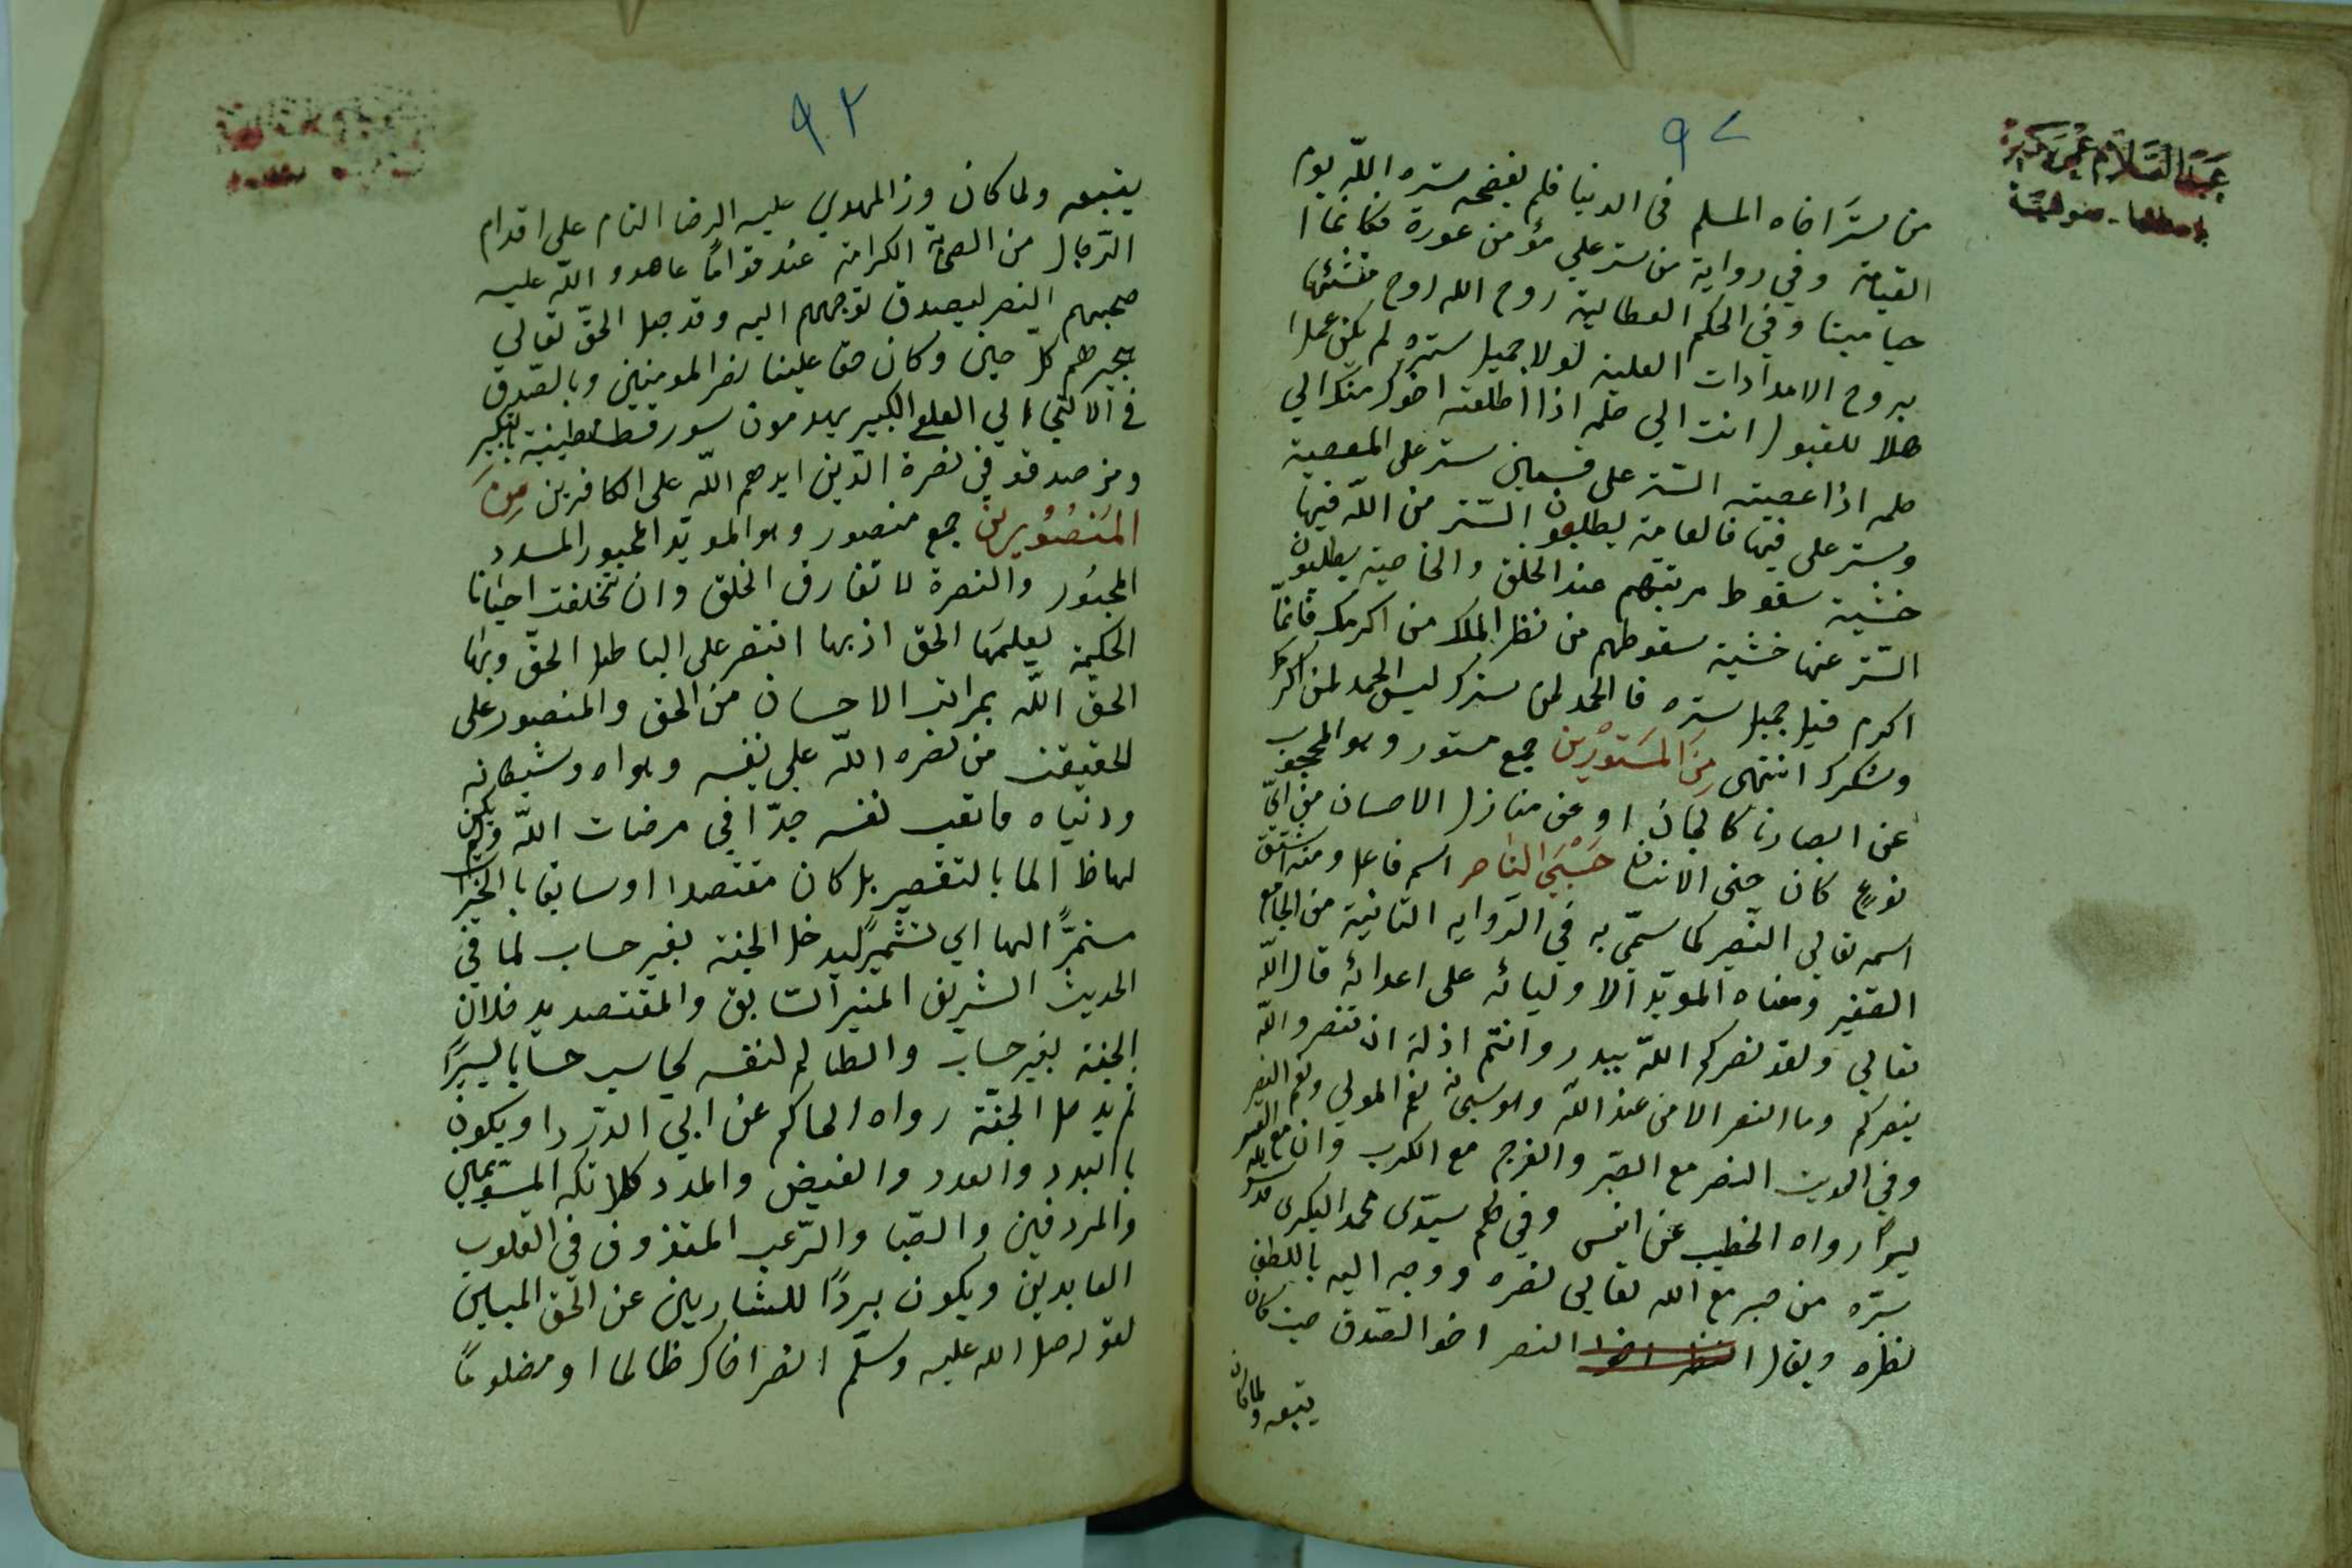 ٩٢
من ستر اخاه المسلم فى الدنيا فلم يفضحه ستره اللّه يوم
القيامة وفي رواية من ستر علي مؤمن عورة فكانما ا
حيا ميتا وفي الحكم العطائية روح الله روح منشئها
بروح الامدادات العلية لولا جميل ستره لم يكن عملا
هلا للقبول انت الي حلمه اذا اطلعته احوج منك الي
حلمه اذا عصيته الستر على قسمين ستر على المعصية
وستر على فيها فالعامة يطلبون الستر من اللّه فيها
خشية سقوط مرتبتهم عند الخلق والخاصية يطلبون
الستر عنها خشية سقوطهم من نظر الملك من اكرمك فانمّا
اكرم فيك جميل ستره فالحمد لمن سترك ليس الحمد لمن اكرمك
وشكرك انتهى مِنَ المَسْتوُرْين جمع مستور وهو المحجوب
عن ابصارنا كالجان او عن منازل الاحسان من ايّ
نوع كان حتى الانسان حَسْبَي الناصر اسم فاعل ومنه اشتق
اسمه تعالي النصير كما سمّي به في الرواية الثانية من الجامع
الصغير ومعناه المويّد الاوليائه على اعدائه قال اللّه
تعالي ولقد نصركم اللّه ببدر وانتم اذلة ان تنصرواللّه
ينصركم وما النصر الا من عند اللّه وهو سبحانه نعم المولي ونعم النصير
وفي الحديث النصر مع الصبر والفرج مع الكرب وان مع العسر
يسراً رواه الخطيب عن انس وفي حكم سيّدى محمد البكرى قدس الله
سرّه من صبر مع الله تعالي نصره ووجه اليه باللطف
نظره ويقال النصر اخوا الصدق حيث كان
يتبعه ولما كان
٩٢
يتبعه ولما كان وزر المهدي عليه الرضا التام على اقدام
الرّجال من الصحابة الكرامة عند قواماً عاهدوا اللّه عليه
صحبهم النصر ليصدق توجههم اليه وقد جعل الحقّ تعالي
يجبرهم كل حين وكان حقا علينا نصر المومنين وبالصدق
في الالتجاء الي العلي الكبير يهدمون سور قسطنطينية بالتكبير
ومن صدقو في نصرة الدّين ايدهم اللّه على الكافرين مِنَ
المَنصُوُرين جمع منصور وهو المويّد المحبور المسدد
المجبوُر والنصرة لا تفارق الخلق وان تخلفت احيانا
الحكمة يعلمَها الحق اذ بها انتصر على الباطل الحقّ وبها
الحق اللّه بمراتب الاحسان من الحق والمنصور على
الحقيقة من نصره اللّه علي نفسه وهواه وشيطانه
ودنياه فاتعب نفسه جدّا في مرضات اللّه ولم يكن
لهاظالما بالتقصير بل كان مقتصدا او سابقا بالخيرات
مستمرًّا الها اي تشمير ليدخل الجنة بغير حساب لما في
الحديث الشريف المنير السّابق والمقتصد يدخلان
الجنة بغير حساب والظالم لنفسه يحاسب حسابا يسيرًا
ثم يدخل الجنّة رواه الحاكم عن ابي الدرّدا ويكون
بالبدد والعدد والفيض والمدد كالملائكه المسّومين
والمردفين والصّبا والرّعب المقذوف في القلوب
العابدين ويكون بردًا للشاربين عن الحق المبين
لقوله صل الله عليه وسلّم انصر اخاك ظالما او مضلوماً